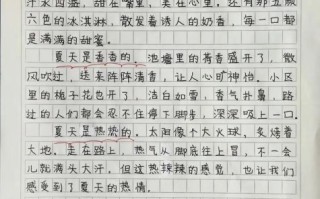 汁水四溢，甜在嘴里，笑在心里。还有那五颜
六色的冰淇淋，散发着诱人的奶香，每一口都
是满满的甜蜜。
夏天是香香的。池塘里的荷香盛开了，微
风吹过，送来阵阵清香，让人心旷神怡。小区
里的栀子花也开了，洁白如雪，香气扑鼻，路
过的人们都会忍不住停下脚步，深深吸上一口。
夏天是热烈的。太阳像个大火球，炙烤着
大地。走在路上，热气从脚底往上冒，不一会
儿就满头大汗，但这热辣辣的感觉，也让我们
感受到了夏天的热情。